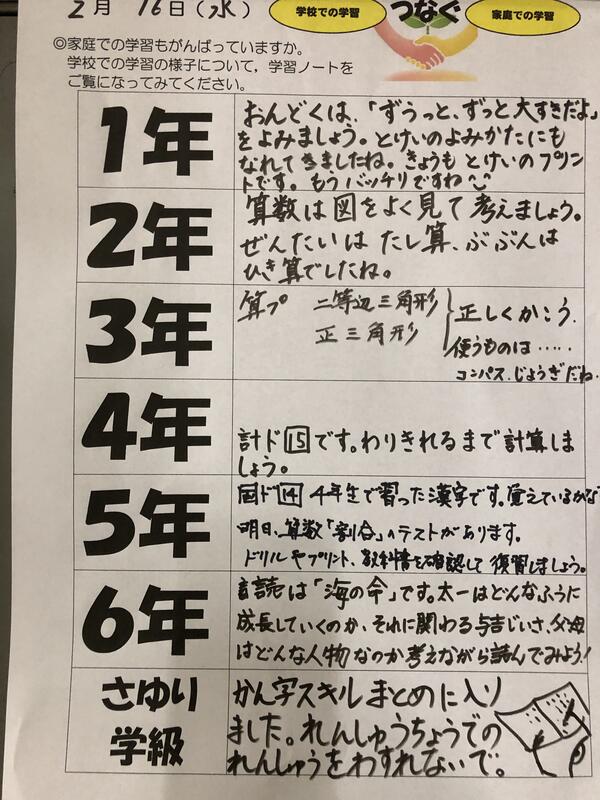 2月 16日(水)
学校での学習
つなぐ
家庭での学習
◎家庭での学習もがんばっていますか。
学校での学習の様子について,学習ノートを
ご覧になってみてください。
1年
おんどくは、「ずうっと、ずっと大すきだよ」
をよみましょう。とけいのよみかたにも
なれてきましたね。きょうもとけいのプリン
トです。もうバッチリですね
2年
算数は図をよく見て考えましょう。
ぜんたいはたし算、ぶぶんは
ひき算でしたね。
3年
算プ 二等辺三角形
正三角形
正しくかこう。
使うものは……
コンパス、じょうぎだね。
4年
計ド15です。わりきれるまで計算しま
しょう。
5年
国ド14 4年生で習った漢字です。覚えているかな
明日、算数「割合」のテストがあります。
ドリルやプリント、教科書を確認して復習しましょう。
6年
音読は「海の命」です。太一はどんなふうに
成長していくのか、それに関わる与吉じいさ、父母
はどんな人物なのか考えながら読んでみよう!
さゆり
学級
かん字スキルまとめに入り
ました。れんしゅうちょうでの
れんしゅうをわすれないで。